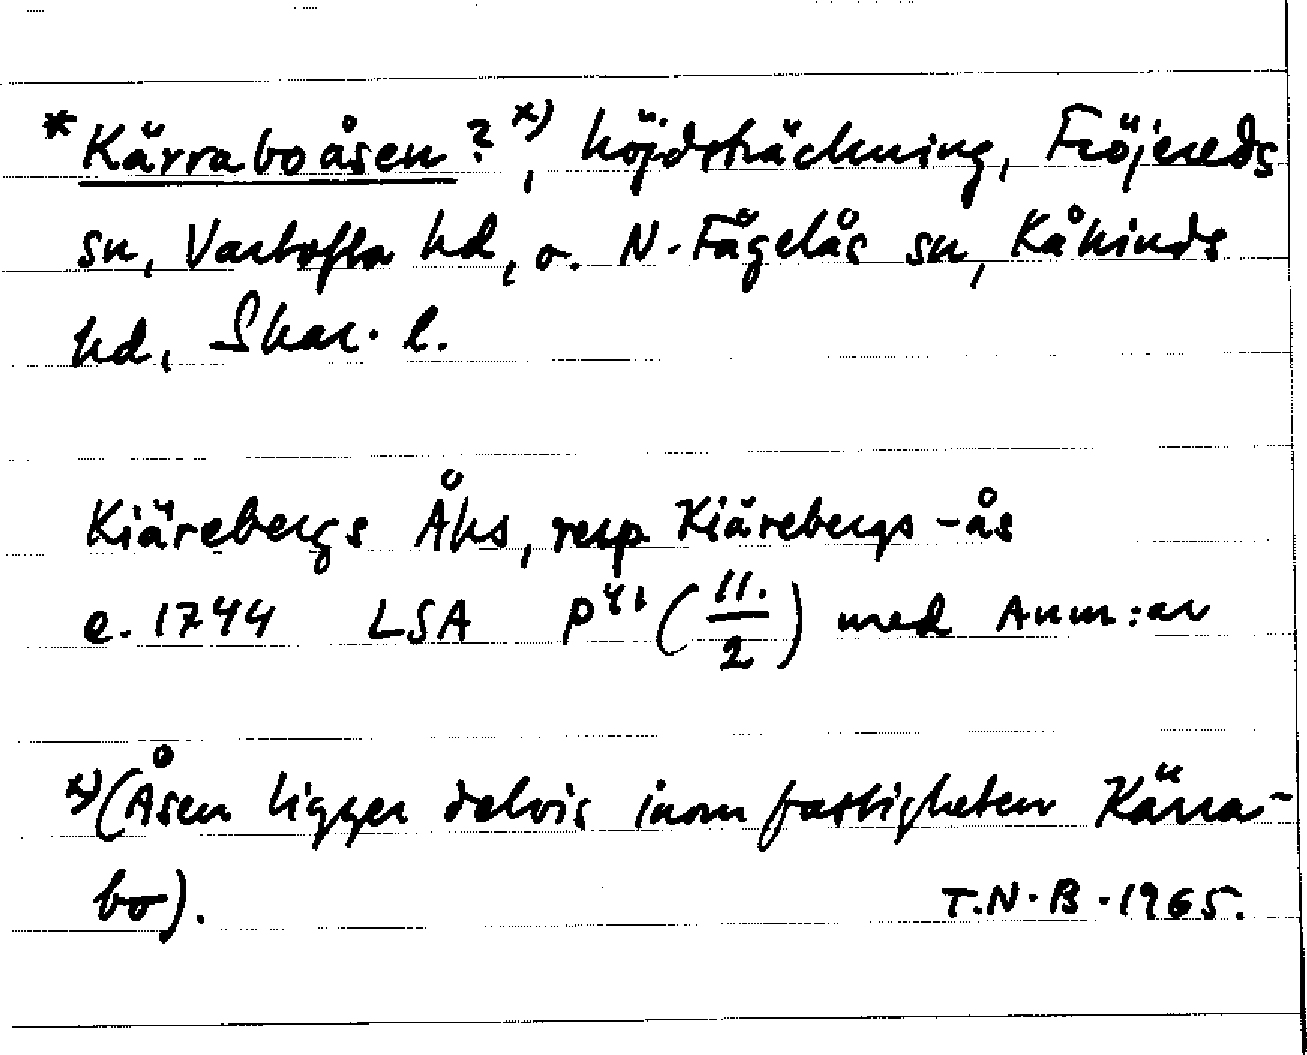 *Kärraboåsen?ˣ⁾, höjdsträckning, Fröjereds
sn, Vartofta hd, o. N. Fågelås sn, Kåkinds
hd, Skar. l.
Kiärebergs Åks, resp Kiärebergs-ås
e. 1744 LSA P⁴¹ (11./2) med Anm:ar
ˣ⁾(Åsen ligger delvis inom fastigheten Kärra-
bo). T.N.B. 1965.